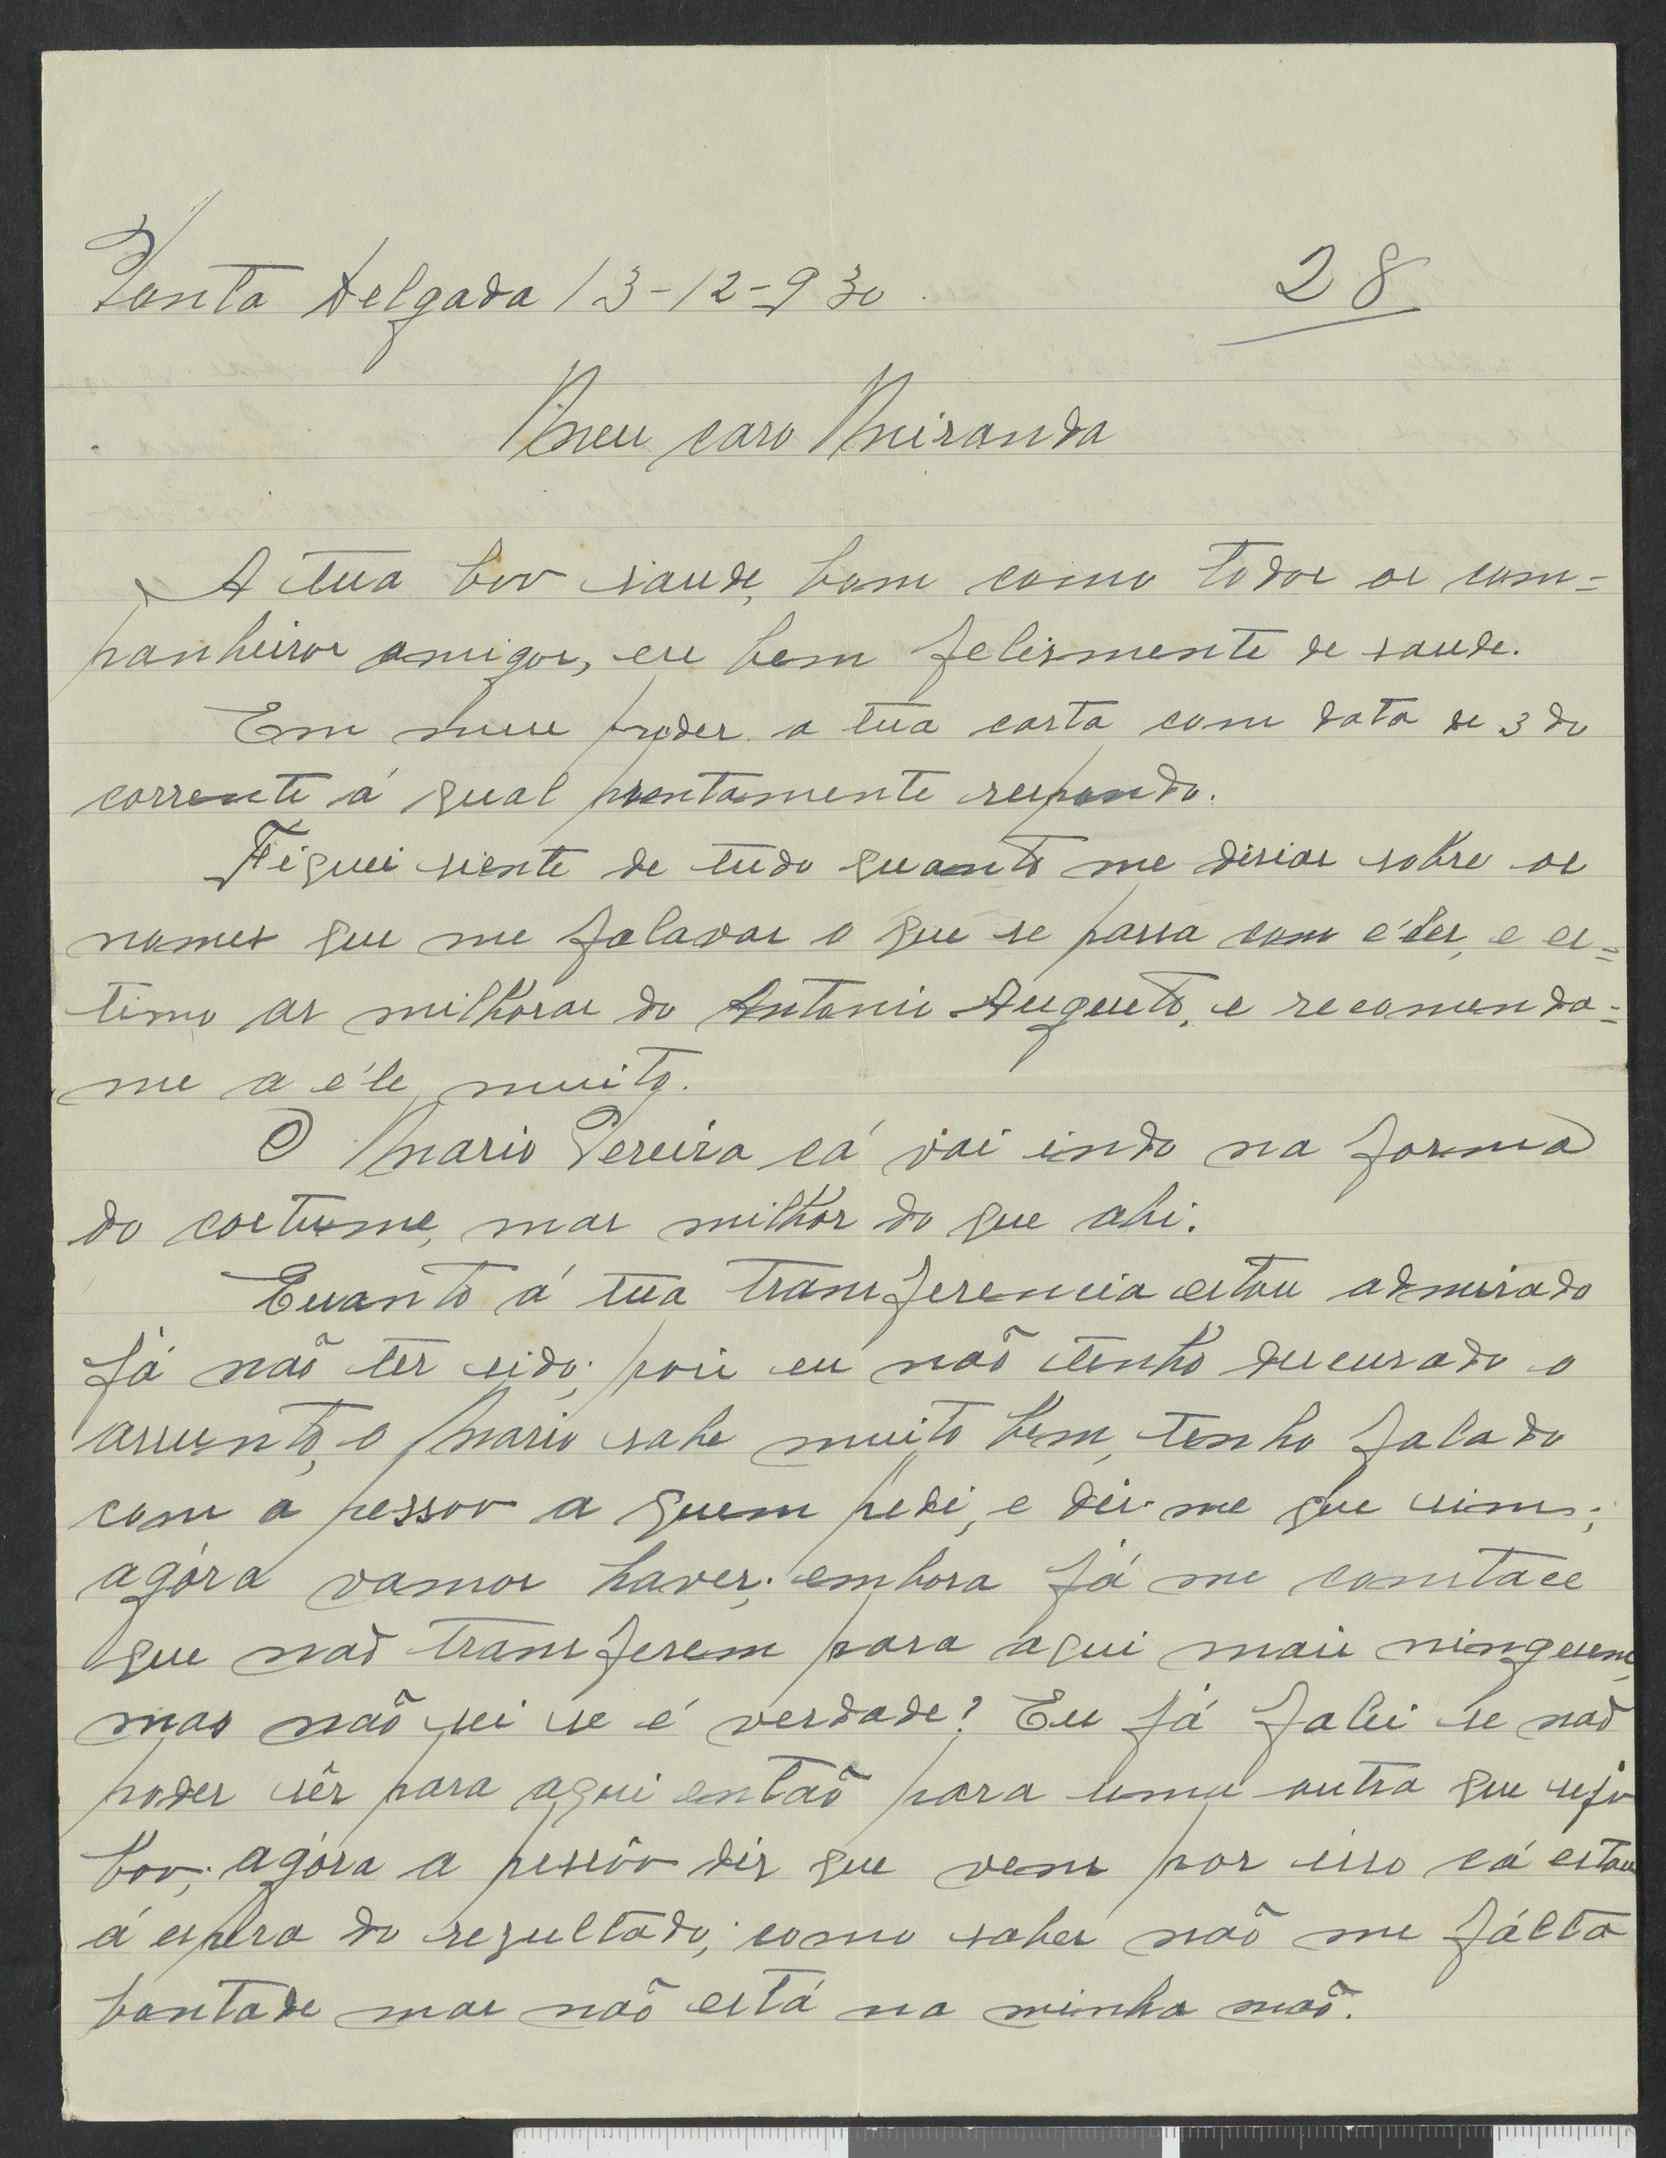 Ponta Delgada 13-12-930
28
Meu caro Miranda
A tua boa saude, bom como todos os com=
panheiros amigos, eu bem felismente de saude.
Em meu poder a tua carta com data de 3 do
corrente á qual prontamente respondo.
Fiquei siente de tudo quanto me disias sobre os
nomes que me falavas o que se passa com eles, e es=
timo as milhoras do Antonio Augusto, e recomenda=
me a éle muito.
O Mario Pereira cá vai indo na forma
do costume, mas milhor do que ahi.
Quanto á tua transferencia estou admirado
já não ter sido; pois eu não tenho descurado o
assunto, o Mario sabe muito bem, tenho falado
com a pessoa a quem pedi, e dis-me que sim;
agóra vamos haver; embora já me constace
que não transferem para aqui mais ninguem,
mas não sei se é verdade? Eu já falei se não
poder sêr para aqui então para uma outra que seja
boa; agóra a pessôa dis que vens por isso cá estou
á espera do resultado; como sabes não me fálta
bontade mas não está na minha mão.